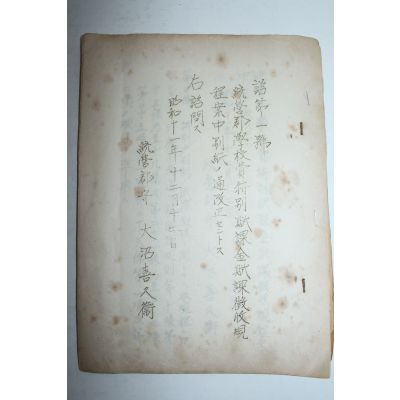 諮第一號
統營郡學校費特別賦課金賦課徵收規
程案中別紙ノ通改正セントス
右諮問ス
昭和十一年十二月十七日
統營郡守 大沼喜久衛